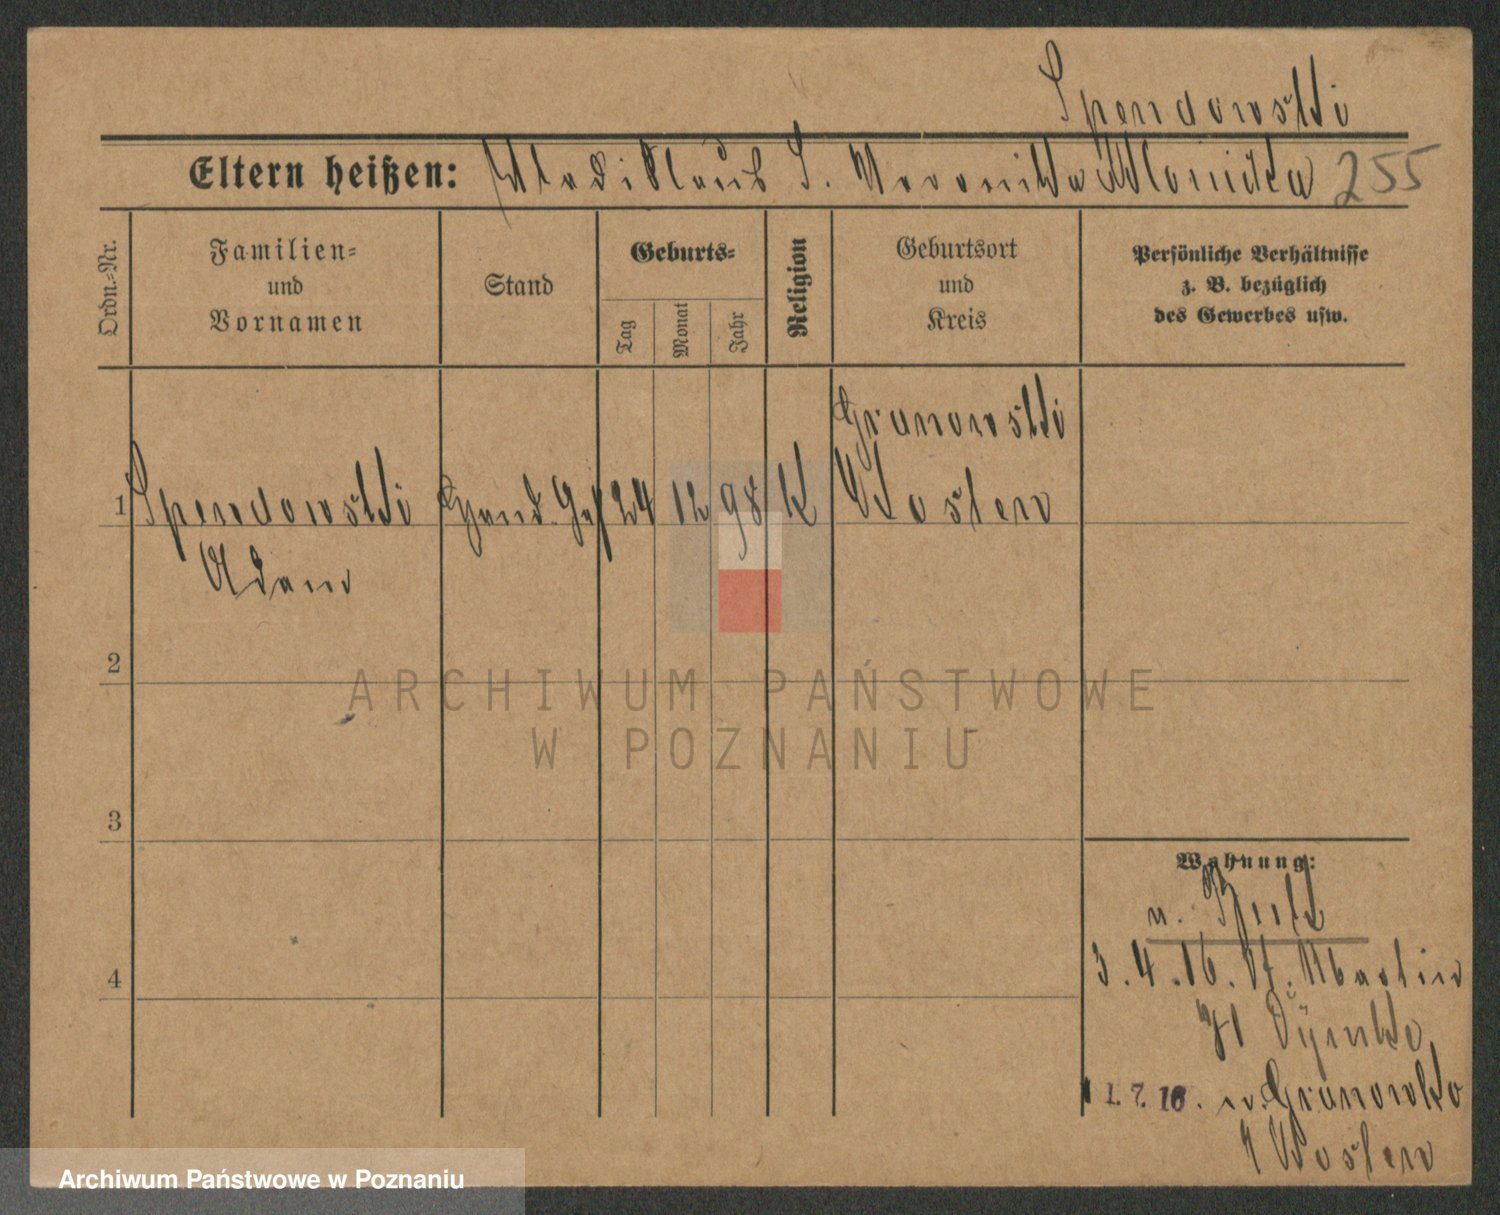 Spendowski
Eltern heißen: Wladislaus S. Veronika 255
Ordn.-Nr.
Familien-
und
Vornamen
Stand
Geburts-
Tag
Monat
Jahr
Religion
Geburtsort
und
Kreis
Persönliche Verhältnisse
z. B. bezüglich
des Gewerbes usw.
1 Spendowski 24 12 98 K
Adam
Kosten
2
3
4
Wohnung:
n.
3.4.16. Martin
1.7.16. n. Granowko
Kosten
ARCHIWUM PAŃSTWOWE
W POZNANIU
Archiwum Państwowe w Poznaniu